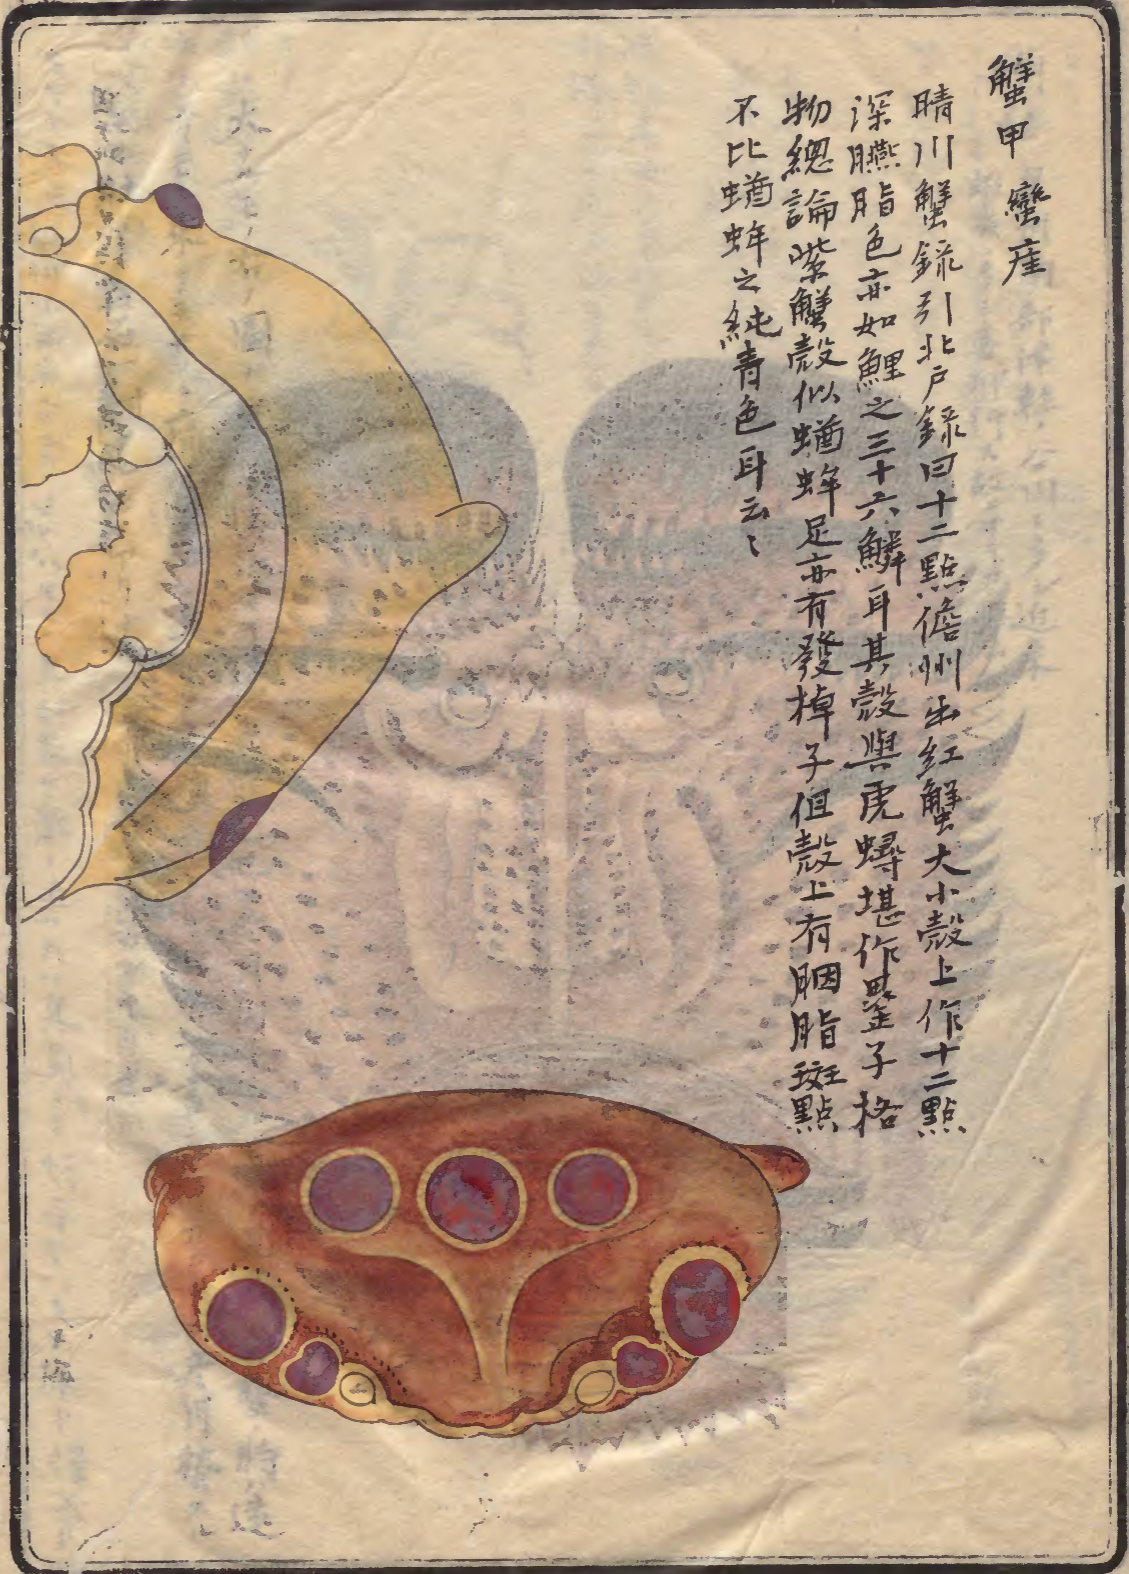 蟹甲 蠻産
晴川蟹録引北戸録曰十二點儋州出紅蟹大小殼上作十二點
深臙脂色亦如鯉之三十六鱗耳其殼與虎蟳堪作疊子格
物總論紫蟹殼似蝤蛑足亦有發棹子但殼上有胭脂斑點
不比蝤蛑之純青色耳云〻